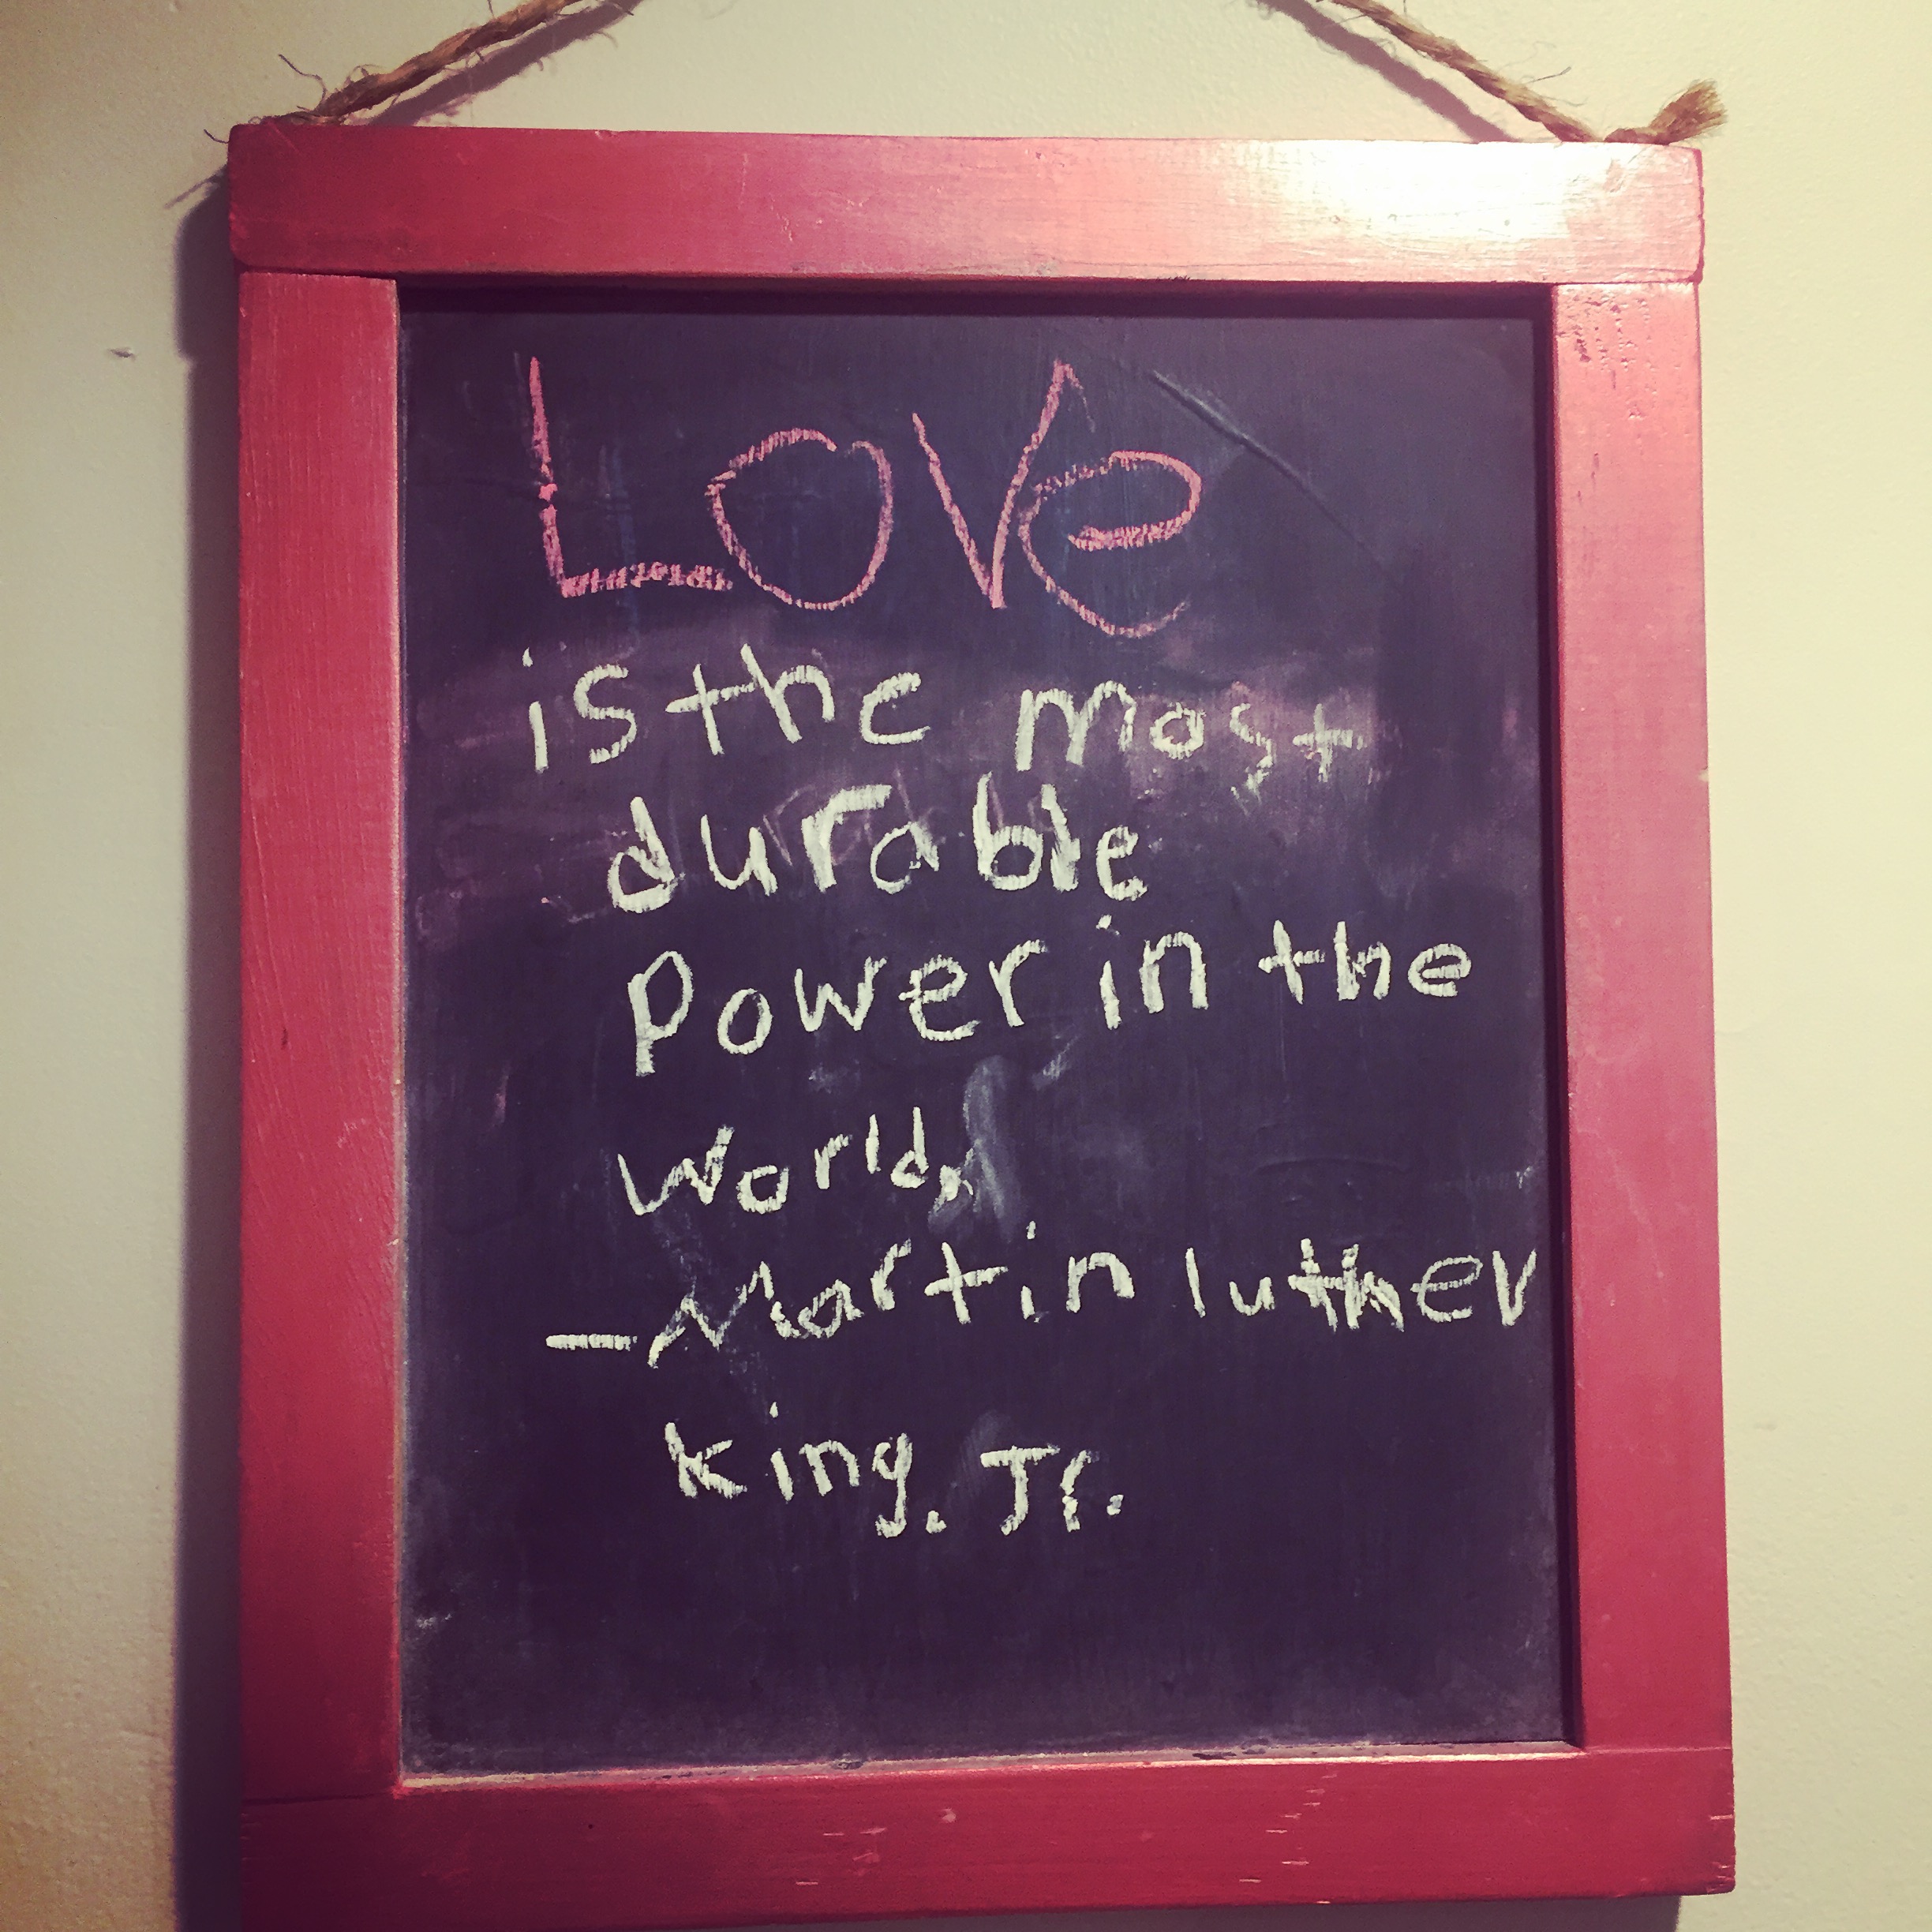 Love
is the most
durable
Power in the
World.
- Martin luther
king. Jr.